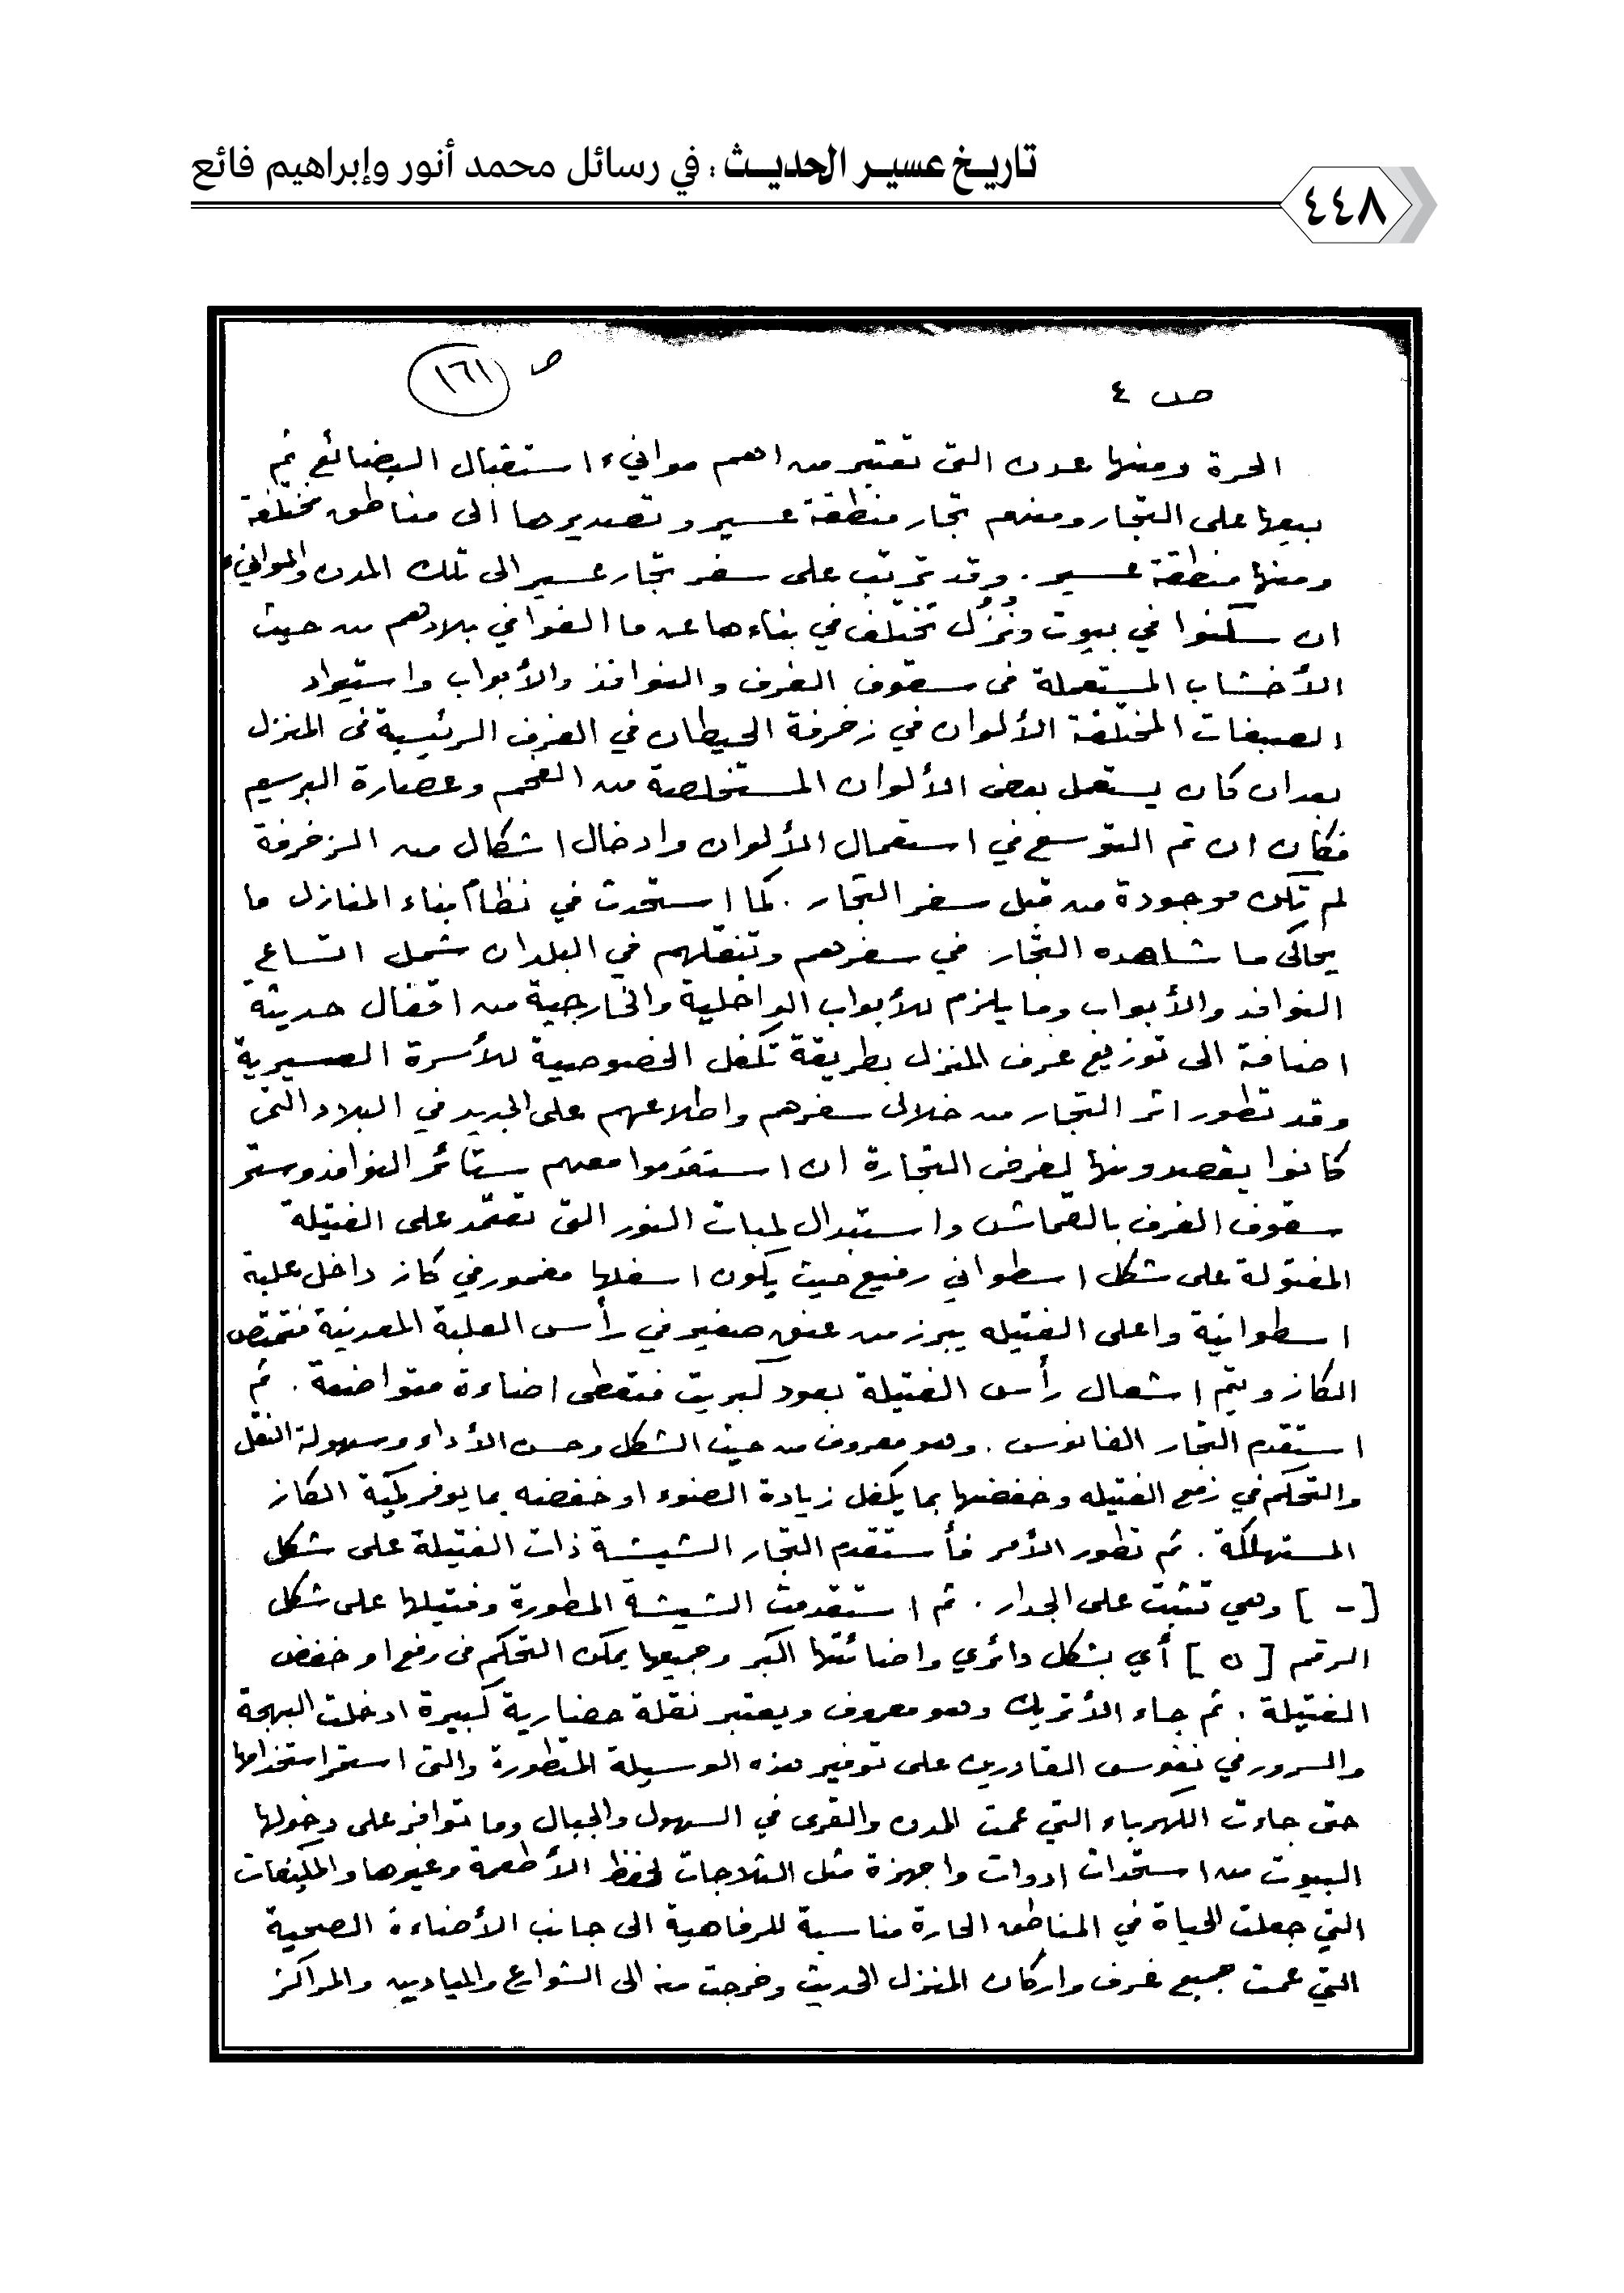 تاريخ عسير الحديث : في رسائل محمد أنور وإبراهيم فائع
٤٤٨
ص ١٦١
ص ٤
الحرة ومنها عدن التى تعتبر من اهم موانيء استقبال البضائع ثم
بيعها على التجار ومنهم تجار منطقة عسير وتصديرها الى مناطق مختلفة
ومنها منطقة عسير . وقد ترتب على سفر تجار عسير الى تلك المدن والموانيء
ان سكنوا في بيوت ونُزُل تختلف في بناءها عن ما الفوا في بلادهم من حيث
الأخشاب المستعملة فى سقوف الغرف والنوافذ والأبواب واستيراد
الصبغات المختلفة الألوان في زخرفة الحيطان في الغرف الرئيسية فى المنزل
بعد ان كان يستعمل بعض الألوان المستخلصة من الفحم وعصارة البرسيم
فكان ان تم التوسع في استعمال الألوان وادخال اشكال من الزخرفة
لم تكن موجودة من قبل سفر التجار . كما استحدث في نظام بناء المنازل ما
يحاكى ما شاهده التجار في سفرهم وتنقلهم في البلدان شمل اتساع
النوافد والأبواب وما يلزم للأبواب الداخلية والخارجية من اقفال حديثة
اضافة الى توزيع غرف المنزل بطريقة تكفل الخصوصية للأسرة العسيرية
وقد تطور اثر التجار من خلال سفرهم واطلاعهم على الجديد في البلاد التى
كانوا يقصدونها لغرض التجارة ان استقدموا معهم ستائر النوافذ وستر
سقوف الغرف بالقماش واستبدال لمبات النور التى تعتمد على الفتيلة
المفتولة على شكل اسطواني رفيع حيث يكون اسفلها مغمور في كاز داخل علبة
اسطوانية واعلى الفتيله يبرز من عنق صغير في رأس العلبة المعدنية فتمتص
الكاز ويتم اشعال رأس الفتيلة بعود كبريت فتعطى اضاءة متواضعة . ثم
استقدم التجار الفانوس . وهو معروف من حيث الشكل وحسن الأداء وسهولة النقل
والتحكم في رفع الفتيله وخفضها بما يكفل زيادة الضوء او خفضه بما يوفر كمية الكاز
المستهلكة . ثم تطور الأمر فأستقدم التجار الشيشة ذات الفتيلة على شكل
[ - ] وهي تثبت على الجدار . ثم استقدمت الشيشة المطورة وفتيلها على شكل
الرقم [ ٥ ] أي بشكل دائري واضائتها اكبر وجميعها يمكن التحكم فى رفع او خفض
الفتيلة . ثم جاء الأتريك وهو معروف ويعتبر نقلة حضارية كبيرة ادخلت البهجة
والسرور في نفوس القادرين على توفير هذه الوسيلة المتطورة والتى استمر استخدامها
حتى جاءت الكهرباء التي عمت المدن والقرى في السهول والجبال وما توافر على دخولها
البيوت من استحداث ادوات واجهزة مثل الثلاجات لحفظ الأطعمة وغيرها والمكيفات
التي جعلت الحياة في المناطق الحارة مناسبة للرفاهية الى جانب الأضاءة الصحية
التي عمت جميع غرف واركان المنزل الحديث وخرجت منه الى الشوارع والميادين والمراكز